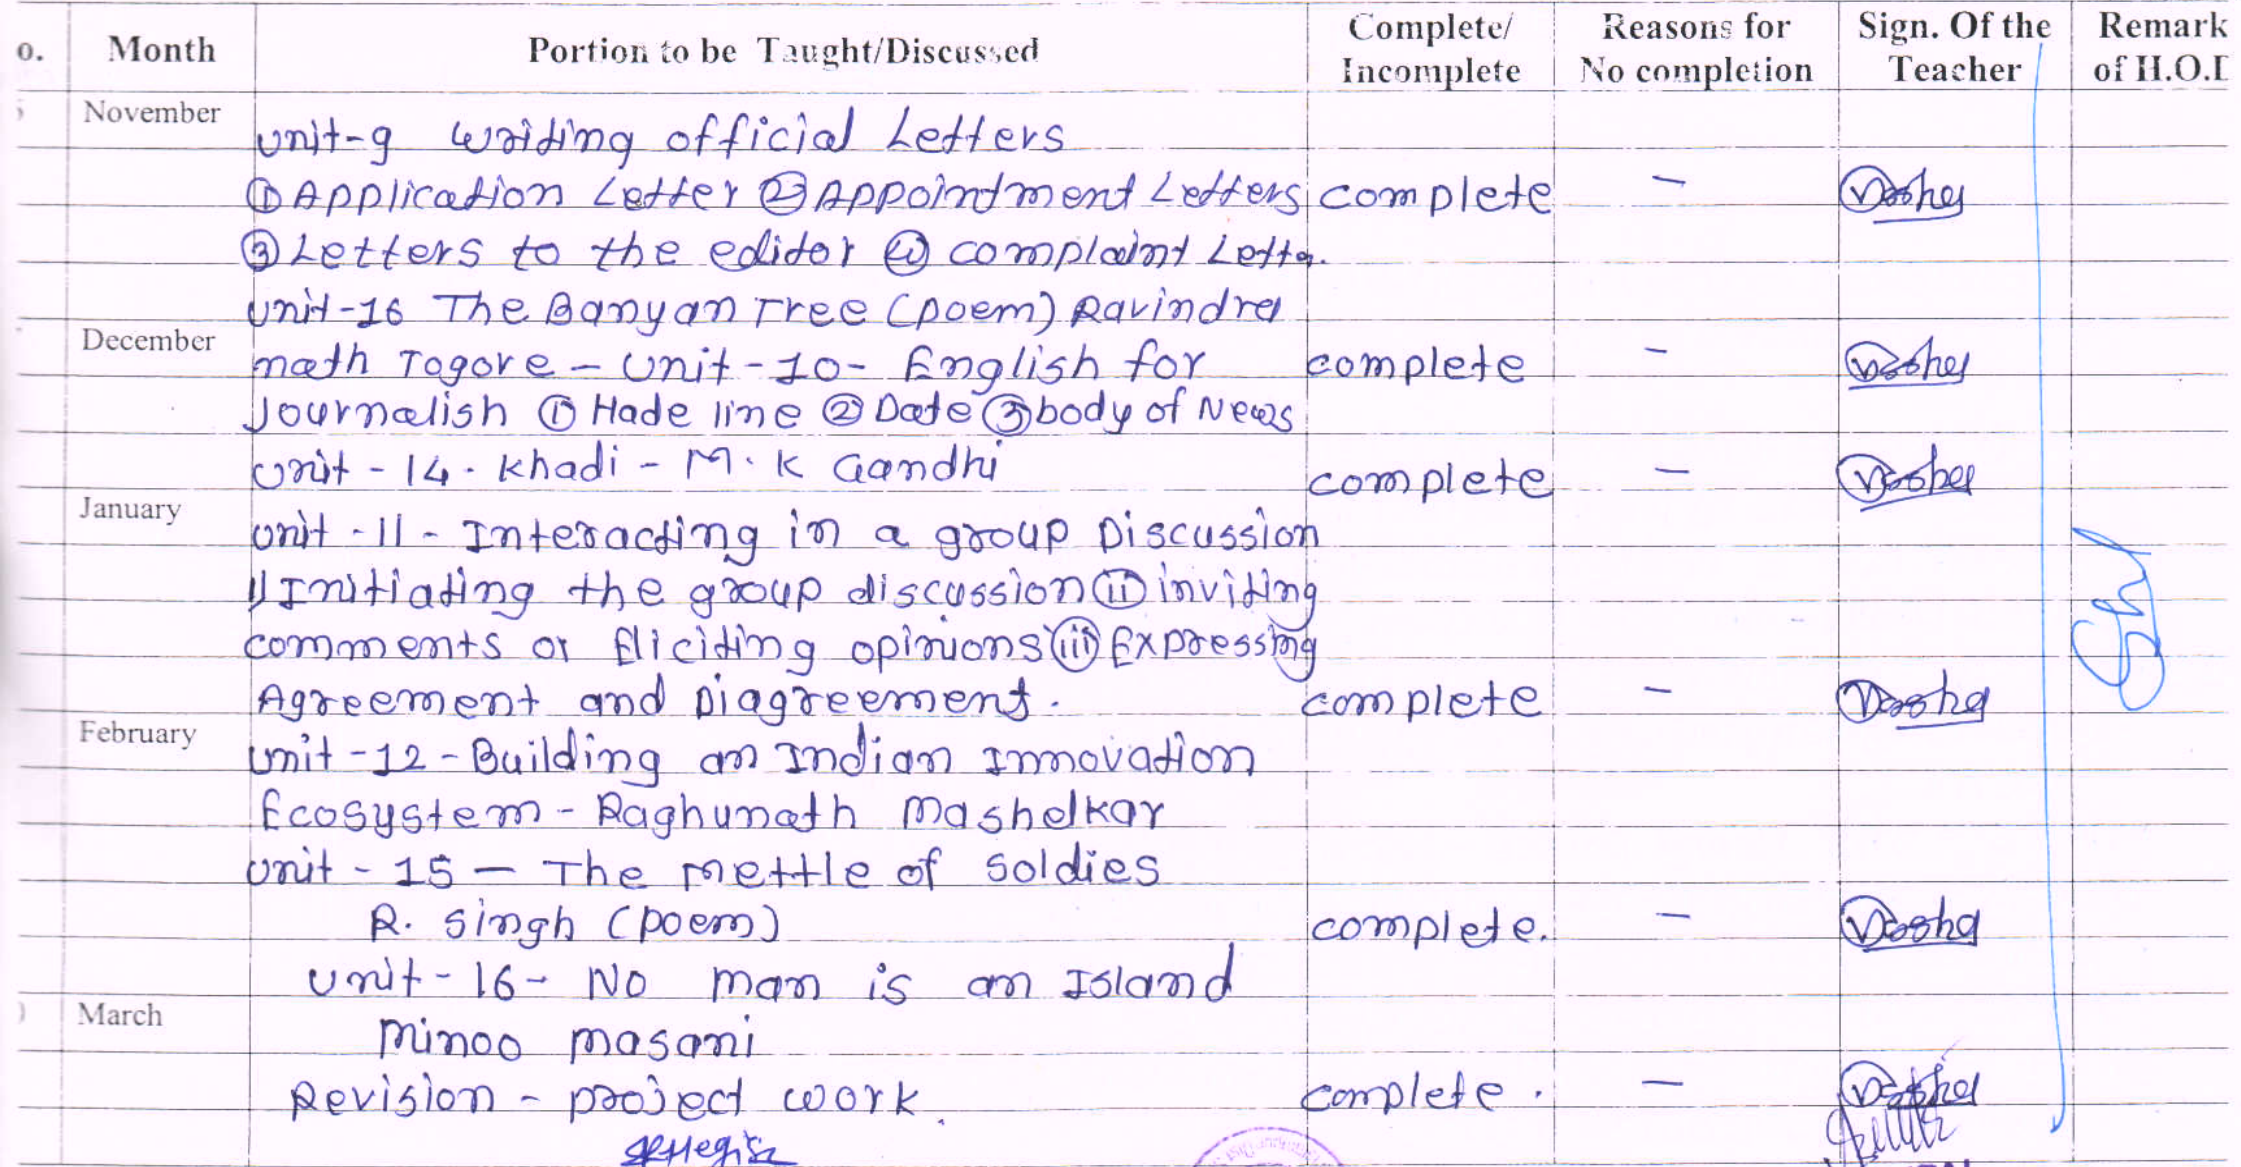 o. Month Portion to be Taught/Discussed Complete/ Incomplete Reasons for No completion Sign. Of the Teacher Remark of H.O.D
November
Unit-9 Writing official Letters
① Application Letter ② Appointment Letters complete –
③ Letters to the editor ④ complaint Lette.
Unit-16 The Banyan Tree (poem) Ravindra
December
nath Togore – Unit-10- English for complete –
Journalish ① Hade line ② Date ③ body of News
Unit-14. Khadi – M. K Gandhi complete –
January
Unit-11- Interacting in a group Discussion
i) Initiating the group discussion (ii) inviting
comments or Eliciding opinions (iii) Expressing
Agreement and Diagreement. complete –
February
Unit-12-Building an Indian Innovation
Ecosystem – Raghunath Mashelkar
Unit-15 – The Mettle of Soldies
R. Singh (poem) complete. –
Unit-16- No man is an Island
March
Minoo masani
Revision – project work. complete. –